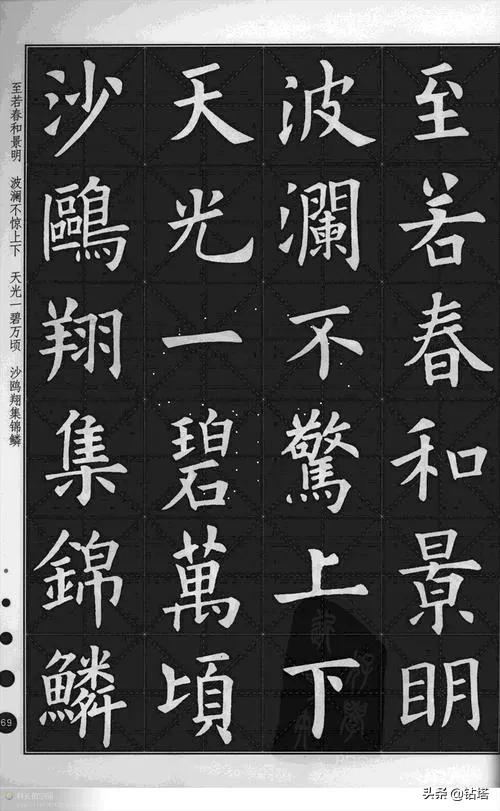 至若春和景明
波瀾不驚上下
天光一碧萬頃
沙鷗翔集錦鱗
至若春和景明 波澜不惊上下 天光一碧万顷 沙鸥翔集锦鳞
69
头条@钻塔